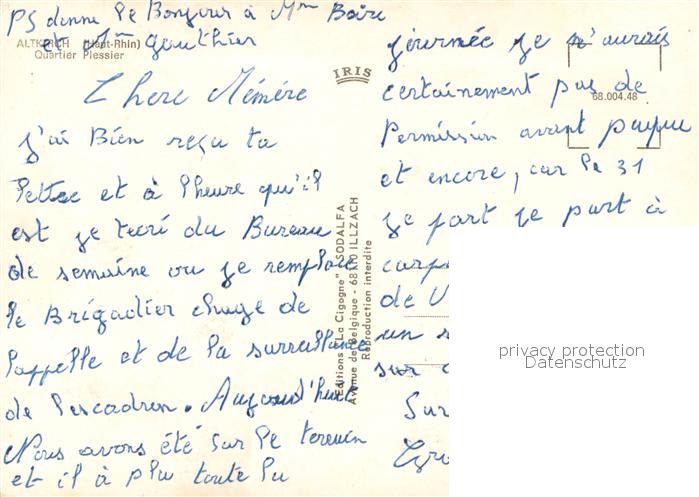 PS donne le Bonjour à Mme Boire
et Mme Gauthier
ALTKIRCH (Haut-Rhin)
Quartier Plessier
Chere Mémère
J'ai Bien reçu ta
lettre et à l'heure qu'il
est je t'ecri du Bureau
de semaine ou je remplace
le Brigadier chargé de
l'appelle et de la surveillance
de l'escadron. Aujourd'hui
Nous avons été sur le terrain
et il à plu toute la
IRIS
Editions "La Cigogne" SODALFA
Avenue de Belgique - 68110 ILLZACH
Reproduction interdite
68.004.48
journée je n'aurais
certainement pas de
Permission avant
et encore, car le 31
je part je part à
de V
un s
sur
Sur
privacy protection
Datenschutz